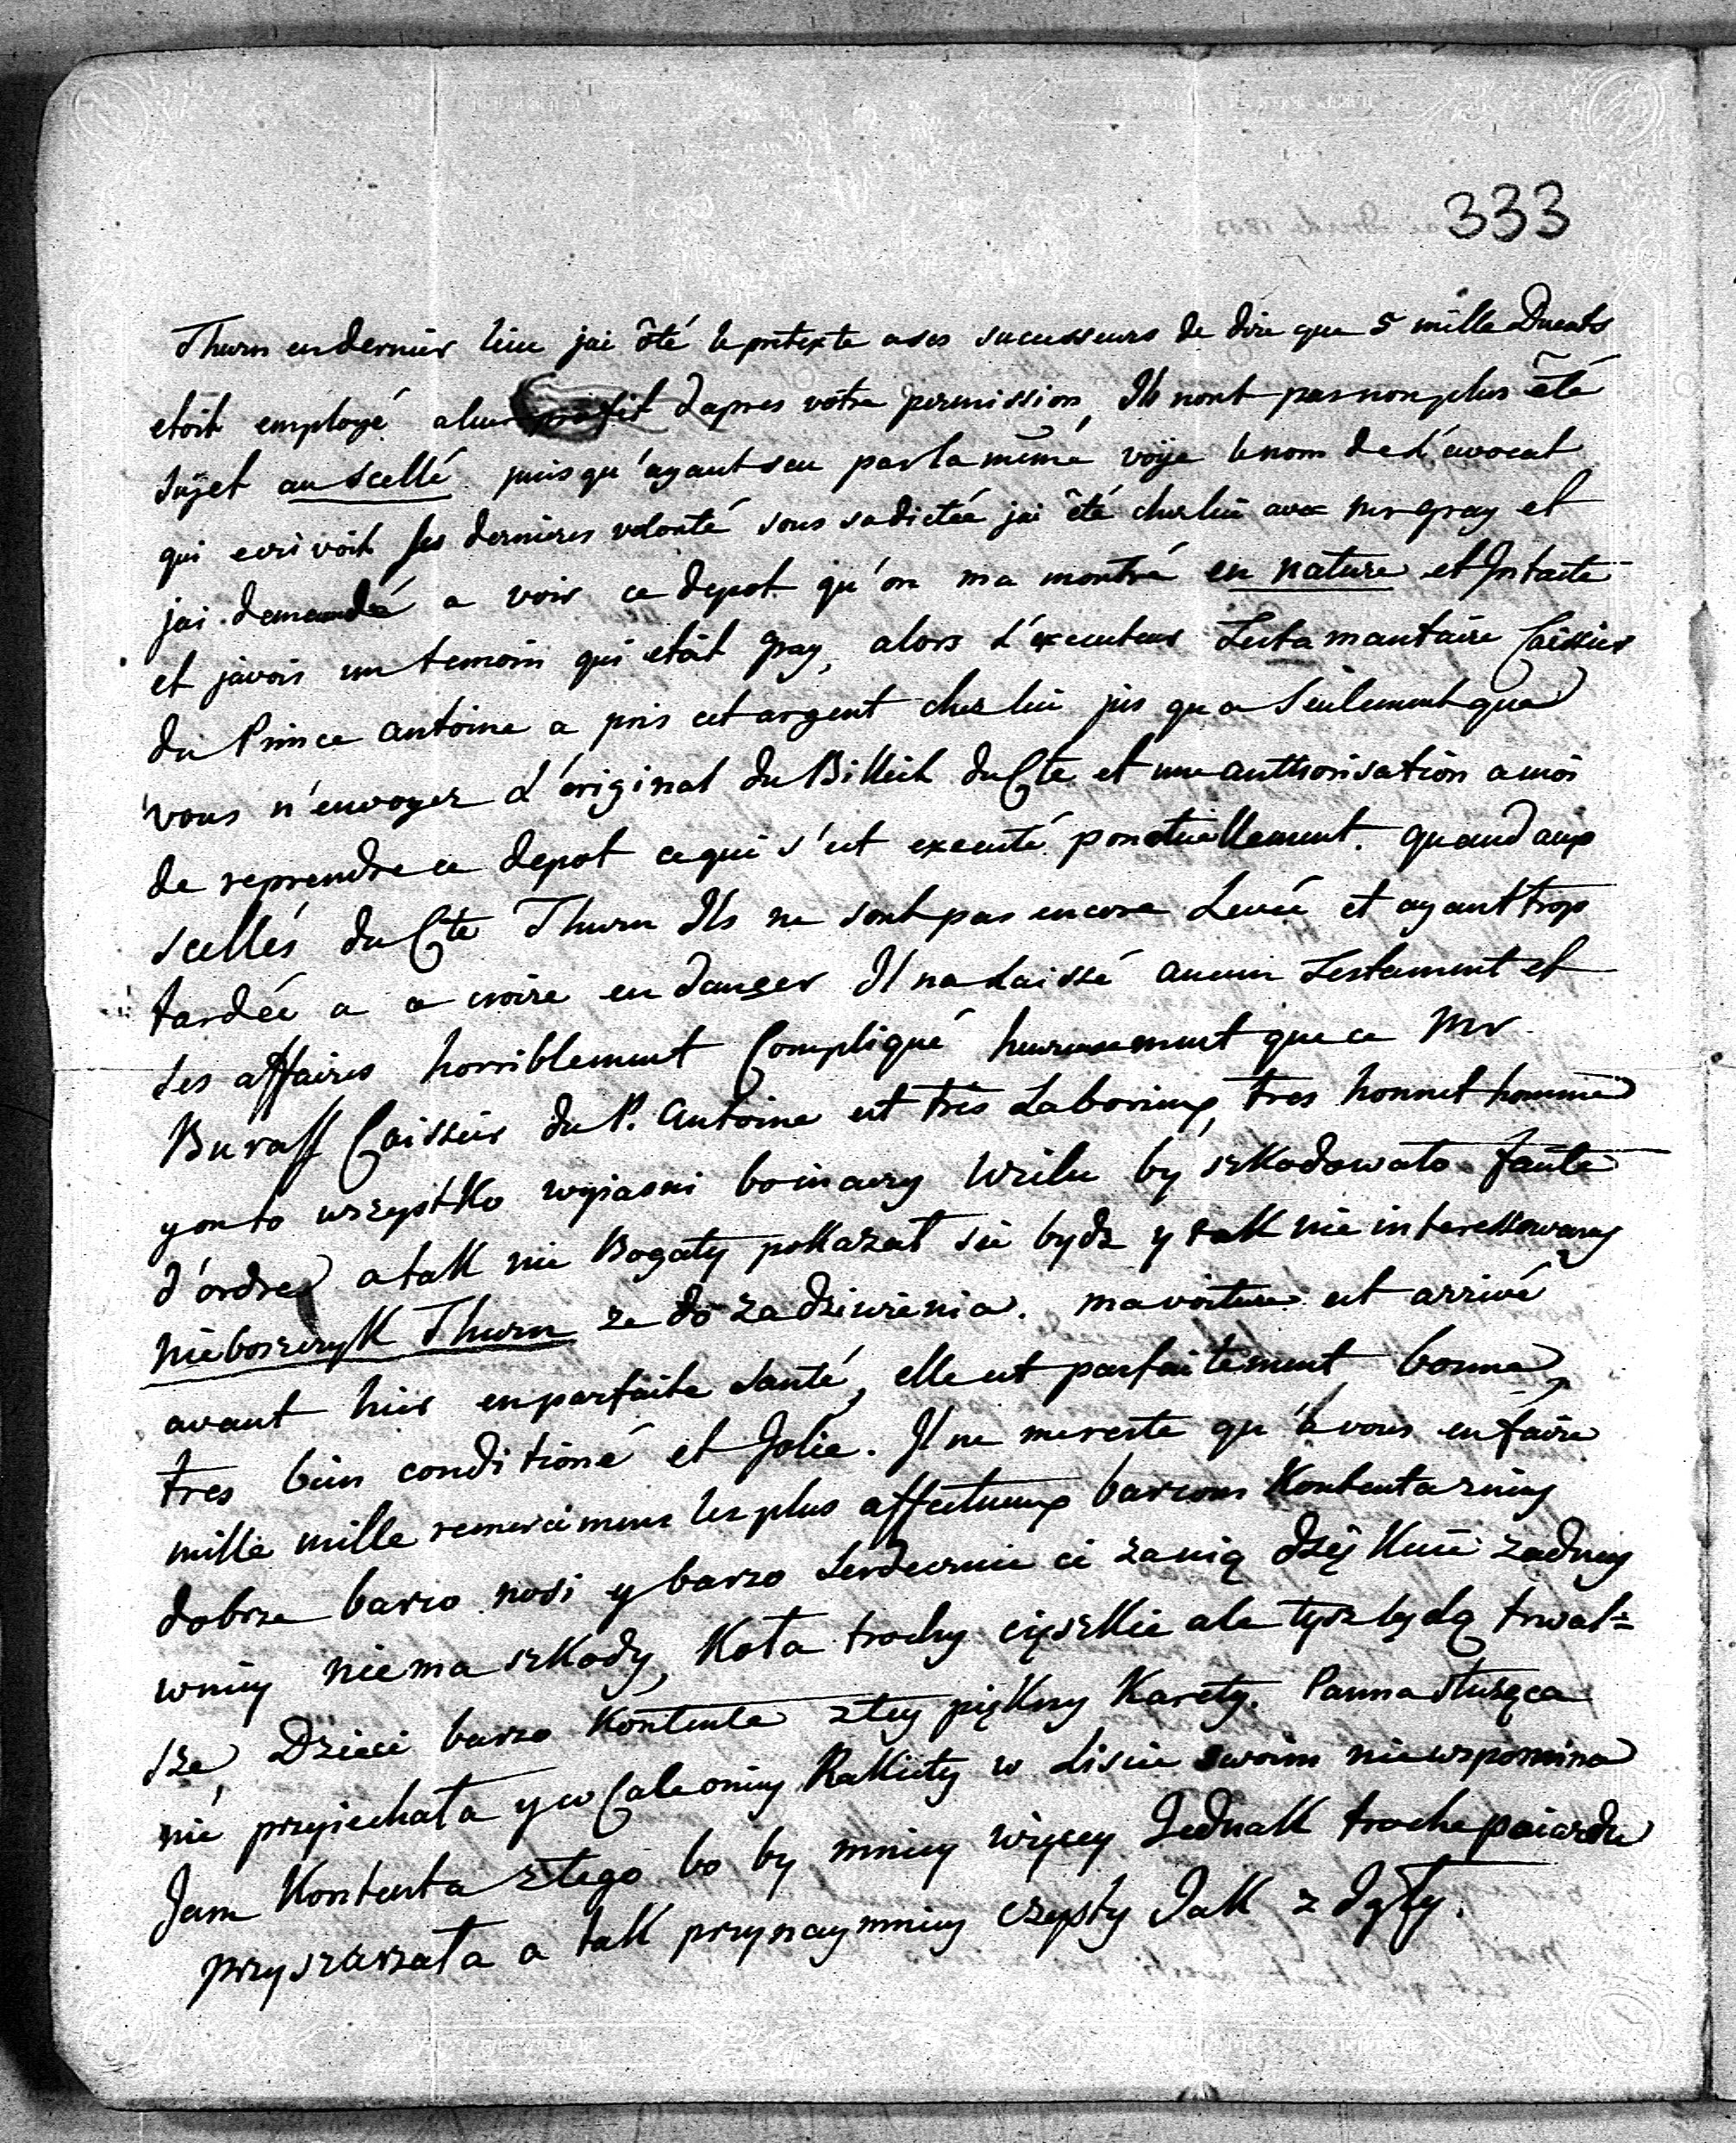 333
Thurn en dernier lieu jai ôté le pretexte a ses successeurs de dire que 5 mille Ducats
etoit employé a leur profit dapres votre permission, Ils nont pas non plus êté
sujet au scellé puisqu'ayant seu par la même voÿe le nom de l'avocat
qui ecrivoit ses dernieres volonté sous sa dictée jai été chez lui avec Mr gray et
jai demandé a voir ce depot qu'on ma montré en nature et Intacte
et javois un temoin qui etoit Gray, alors l'executeur Testamantaire Caissier
du Prince Antoine a pris cet argent chez lui jusqu a Seulement que
vous n'envoyez l'original du Billiet du Cte et une authorisation a moi
de reprendre ce depot ce qui s'est executé ponctuellement. quand aux
scellés du Cte Thurn Ils ne sont pas encore Levée et ayant trop
tardée a se croire en danger Il na laissé aucun Testament et
des affaires horriblement Compliqué heureusement que ce Mr
Buraff Caissier du P. Antoine est très Laborieux, tres honnet homme
y on to wszystko wyiasni bo inaczy wielu by szkodowało faute
d'ordre a tak nie Bogaty pokazał sie bydz y tak nie interessowany
nieboszczyk Thurn ze do zadziwienia. ma voiture est arrivé
avant hier en parfaite santé, elle est parfaitement bonne,
tres bien conditioné et Jolie. Il ne me reste qu'à vous en faire
mille mille remerciemens les plus affectueux barzom Kontenta zniey
dobrze barzo nosi y barzo Serdecznie ci za nią dzięKuie zadney
wniey niema szkody, Koła trochy cięszkie ale tysz będą trwal=
sze, Dzieci barzo Kontente z tey piękny Karety. Panna służąca
nie przyiechała y w Caleoniey Rakiety w Liscie swoim nie wspomina
Jam Kontenta z tego bo by mniey więcey Jednak troche poiazdu
przyszarzała a tak przynaymniey czysty Jak z Igły.